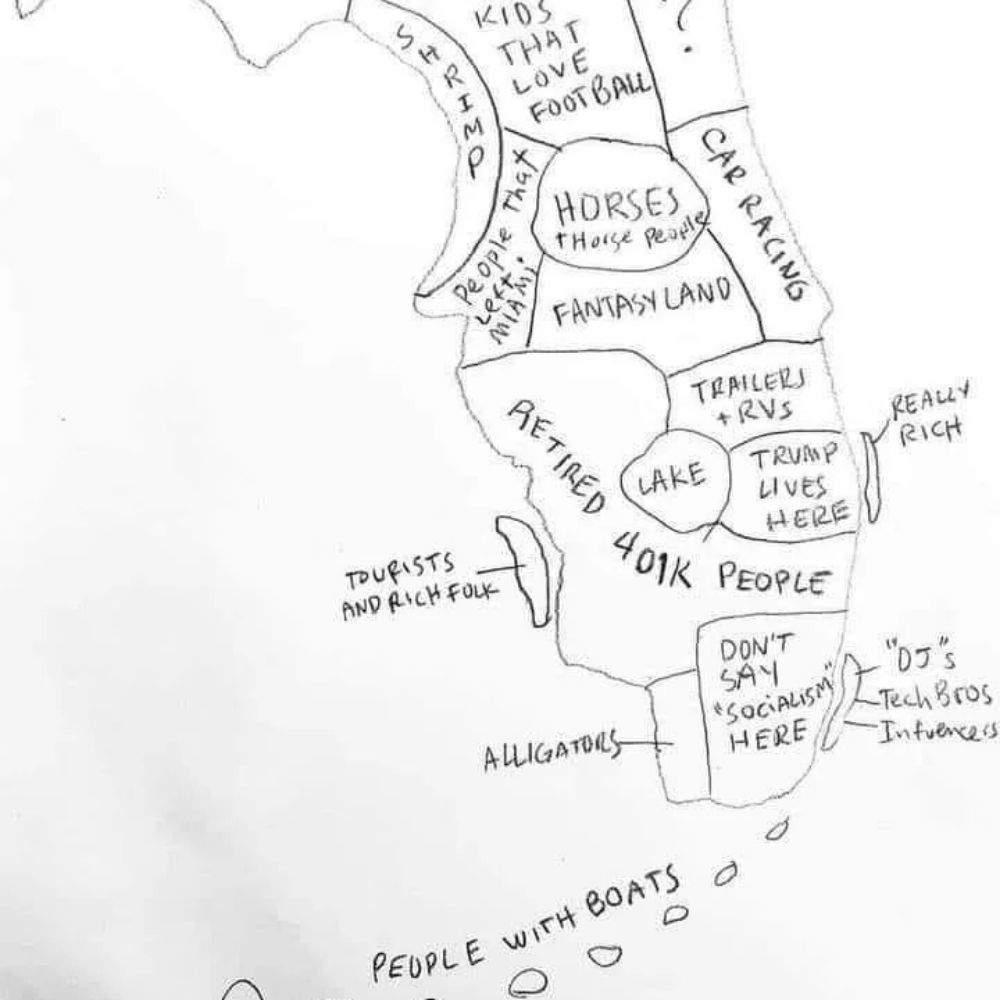 KIDS
THAT
LOVE
FOOTBALL
?
SHRIMP
CAR RACING
People That
Left
MIAMI
HORSES
+ Horse People
FANTASY LAND
TRAILERS
+ RVs
REALLY
RICH
RETIRED 401K PEOPLE
LAKE
TRUMP
LIVES
HERE
TOURISTS
AND RICH FOLK
DON'T
SAY
"SOCIALISM"
HERE
"DJ"s
Tech Bros
Infuencers
ALLIGATORS
PEOPLE WITH BOATS